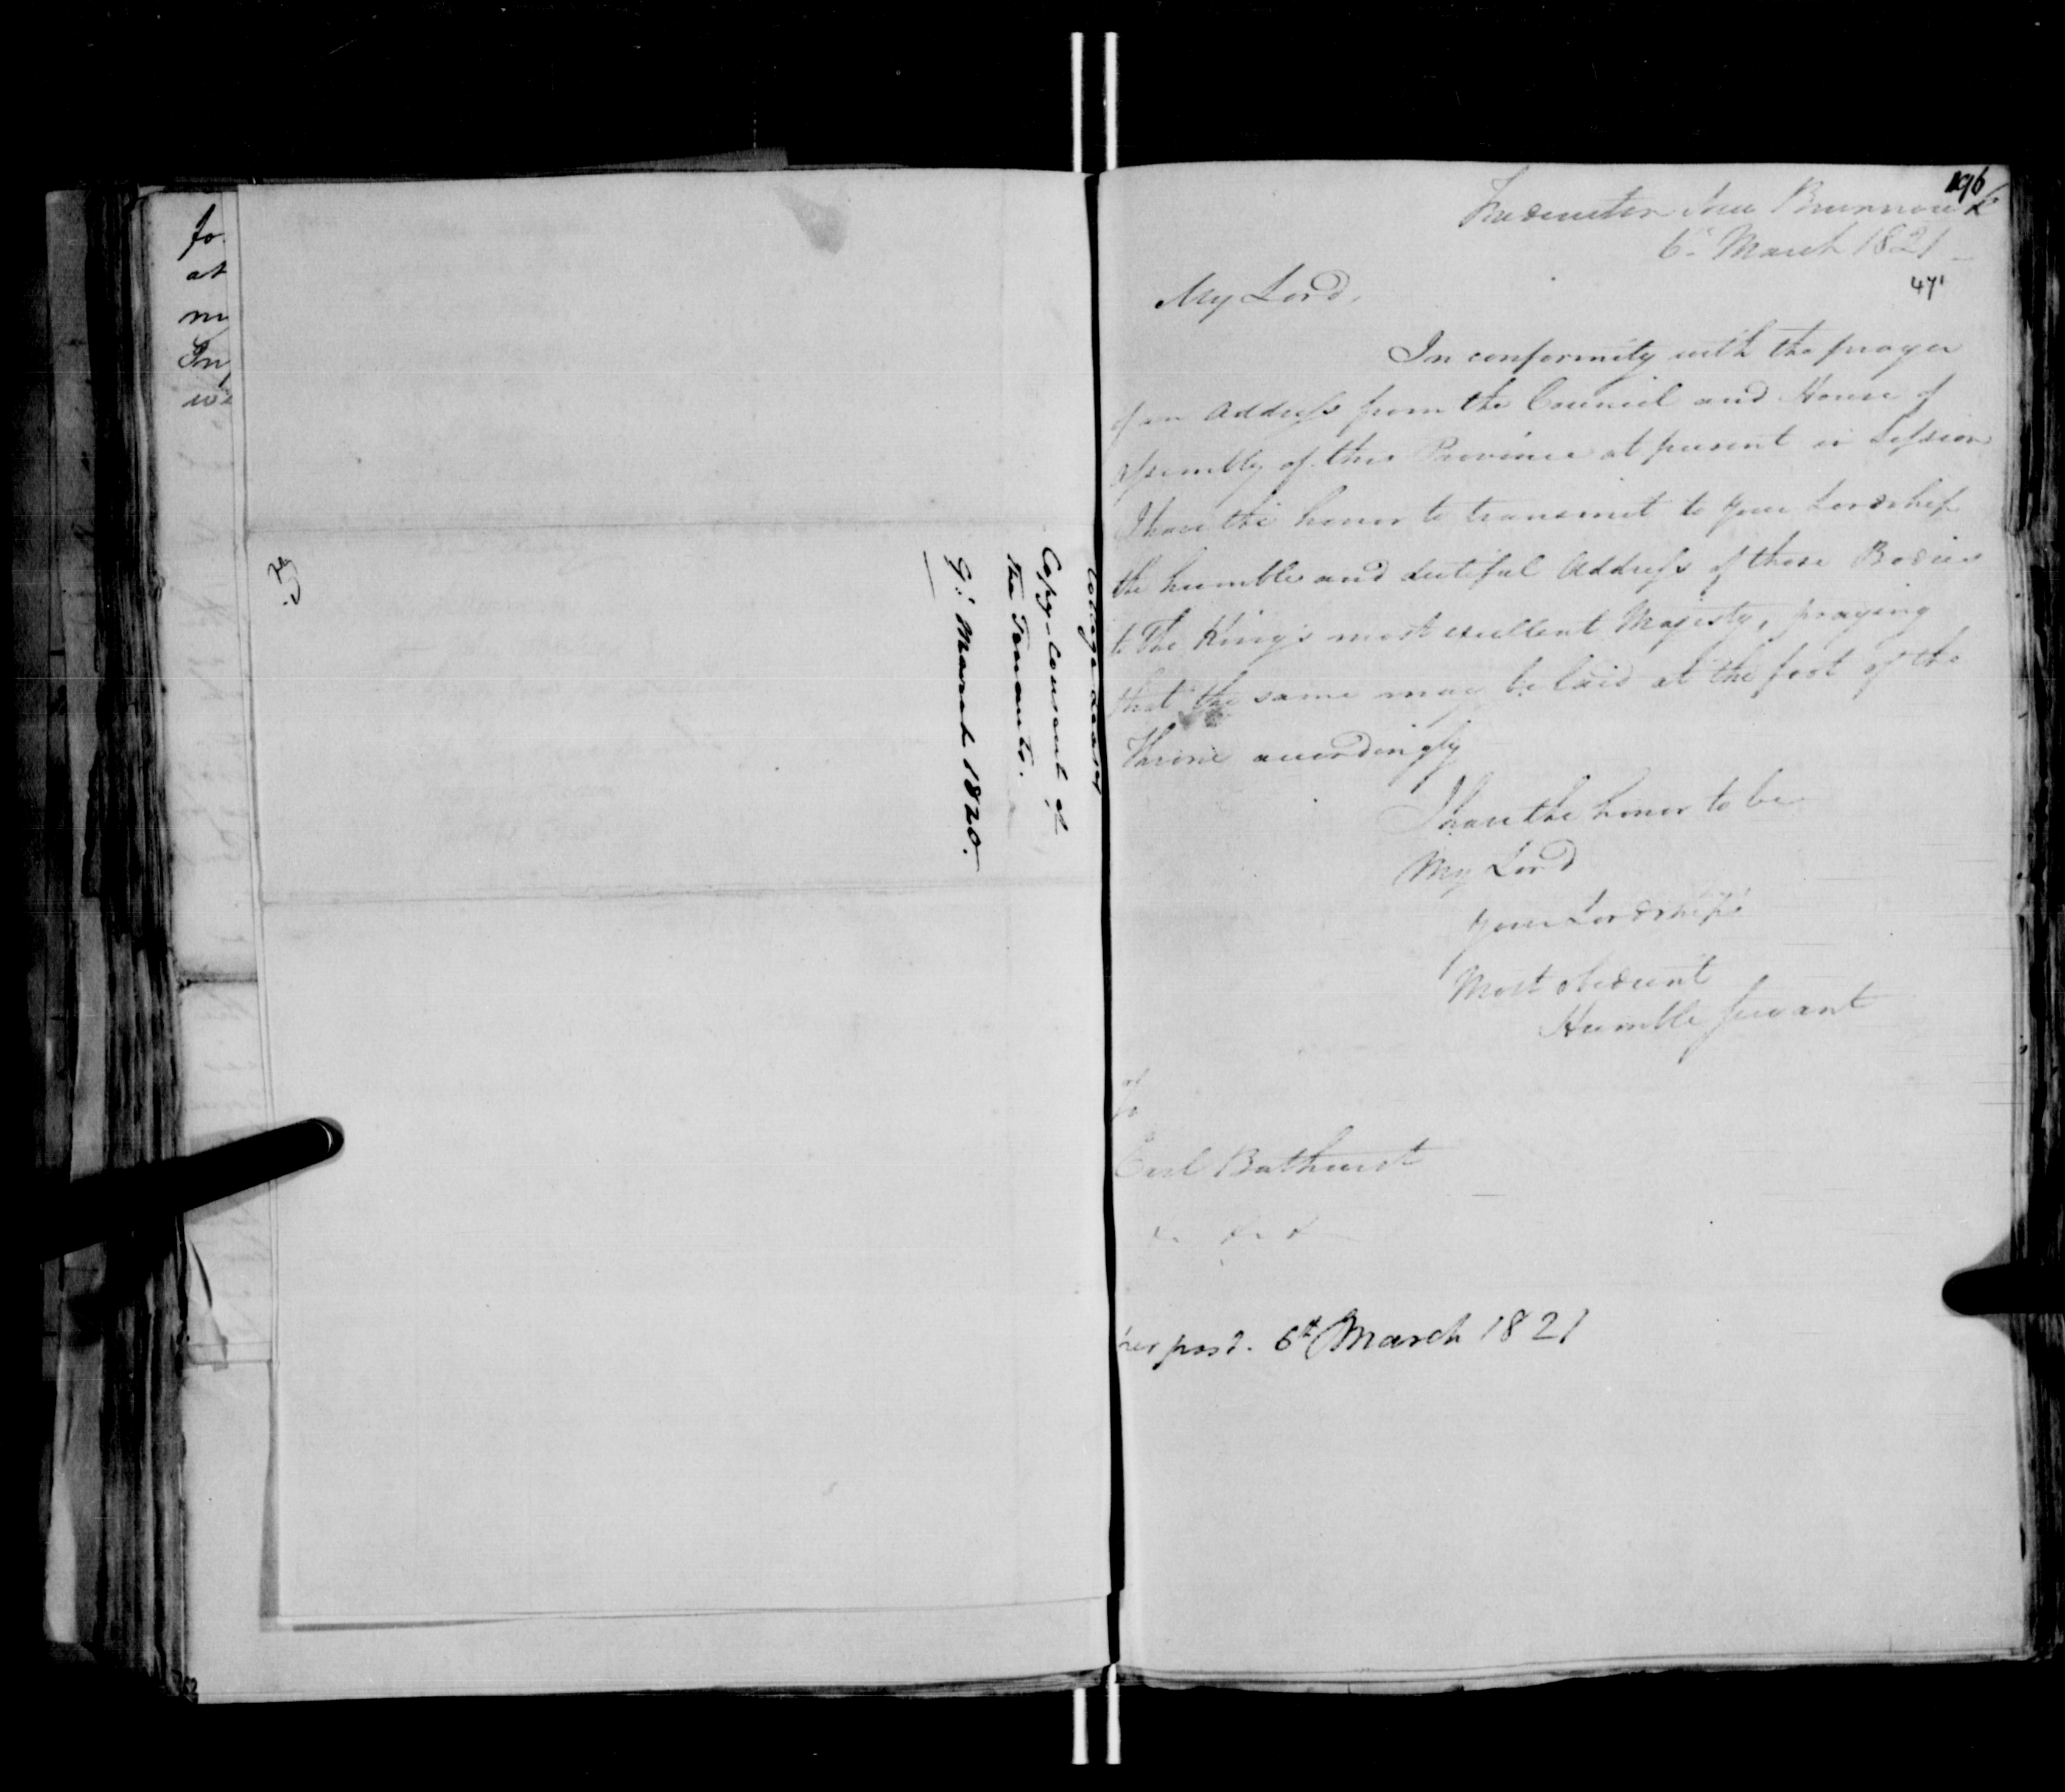 fo
at
m
In
College Leases
Copy-Consent of
the Tenants.
9th March 1820.
196
Fredericton New Brunswick
6th March 1821
471
My Lord,
In conformity with the prayer
of an Address from the Council and House of
Assembly of this Province at present in Session
I have the honor to transmit to your Lordship
the humble and dutiful Address of those Bodies
to The King's most excellent Majesty, praying
that the same may be laid at the foot of the
Throne accordingly
I have the honor to be
My Lord
your Lordship's
Most obedient
Humble servant
To
Earl Bathurst
&c &c &
per post. 6th March 1821